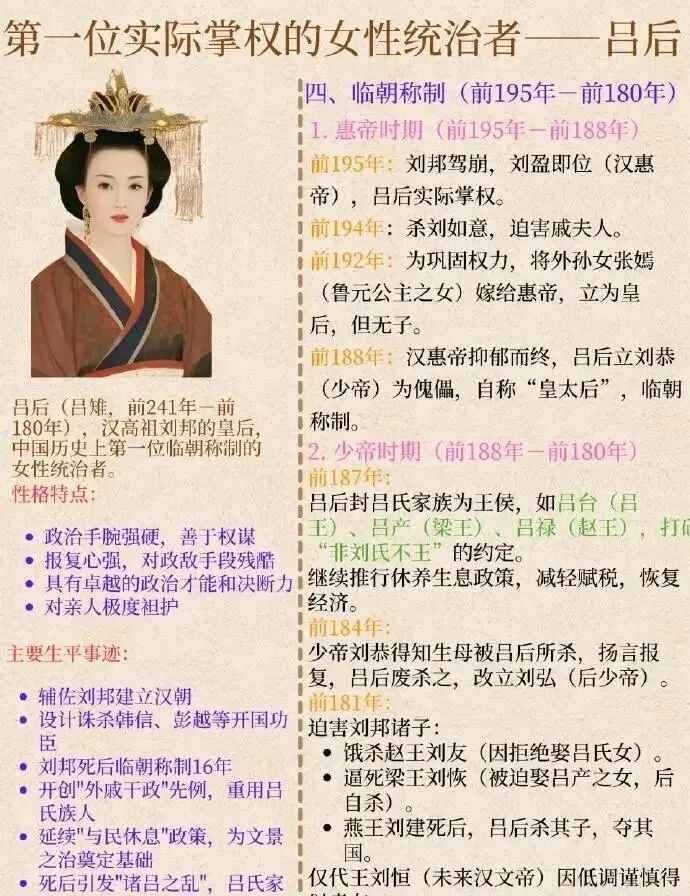 第一位实际掌权的女性统治者——吕后
吕后（吕雉，前241年－前
180年），汉高祖刘邦的皇后，
中国历史上第一位临朝称制的
女性统治者。
性格特点：
• 政治手腕强硬，善于权谋
• 报复心强，对政敌手段残酷
• 具有卓越的政治才能和决断力
• 对亲人极度袒护
主要生平事迹：
• 辅佐刘邦建立汉朝
• 设计诛杀韩信、彭越等开国功
臣
• 刘邦死后临朝称制16年
• 开创"外戚干政"先例，重用吕
氏族人
• 延续"与民休息"政策，为文景
之治奠定基础
• 死后引发"诸吕之乱"，吕氏家
四、临朝称制（前195年－前180年）
1. 惠帝时期（前195年－前188年）
前195年：刘邦驾崩，刘盈即位（汉惠
帝），吕后实际掌权。
前194年：杀刘如意，迫害戚夫人。
前192年：为巩固权力，将外孙女张嫣
（鲁元公主之女）嫁给惠帝，立为皇
后，但无子。
前188年：汉惠帝抑郁而终，吕后立刘恭
（少帝）为傀儡，自称“皇太后”，临朝
称制。
2. 少帝时期（前188年－前180年）
前187年：
吕后封吕氏家族为王侯，如吕台（吕
王）、吕产（梁王）、吕禄（赵王），打破
“非刘氏不王”的约定。
继续推行休养生息政策，减轻赋税，恢复
经济。
前184年：
少帝刘恭得知生母被吕后所杀，扬言报
复，吕后废杀之，改立刘弘（后少帝）。
前181年：
迫害刘邦诸子：
• 饿杀赵王刘友（因拒绝娶吕氏女）。
• 逼死梁王刘恢（被迫娶吕产之女，后
自杀）。
• 燕王刘建死后，吕后杀其子，夺其
国。
仅代王刘恒（未来汉文帝）因低调谨慎得